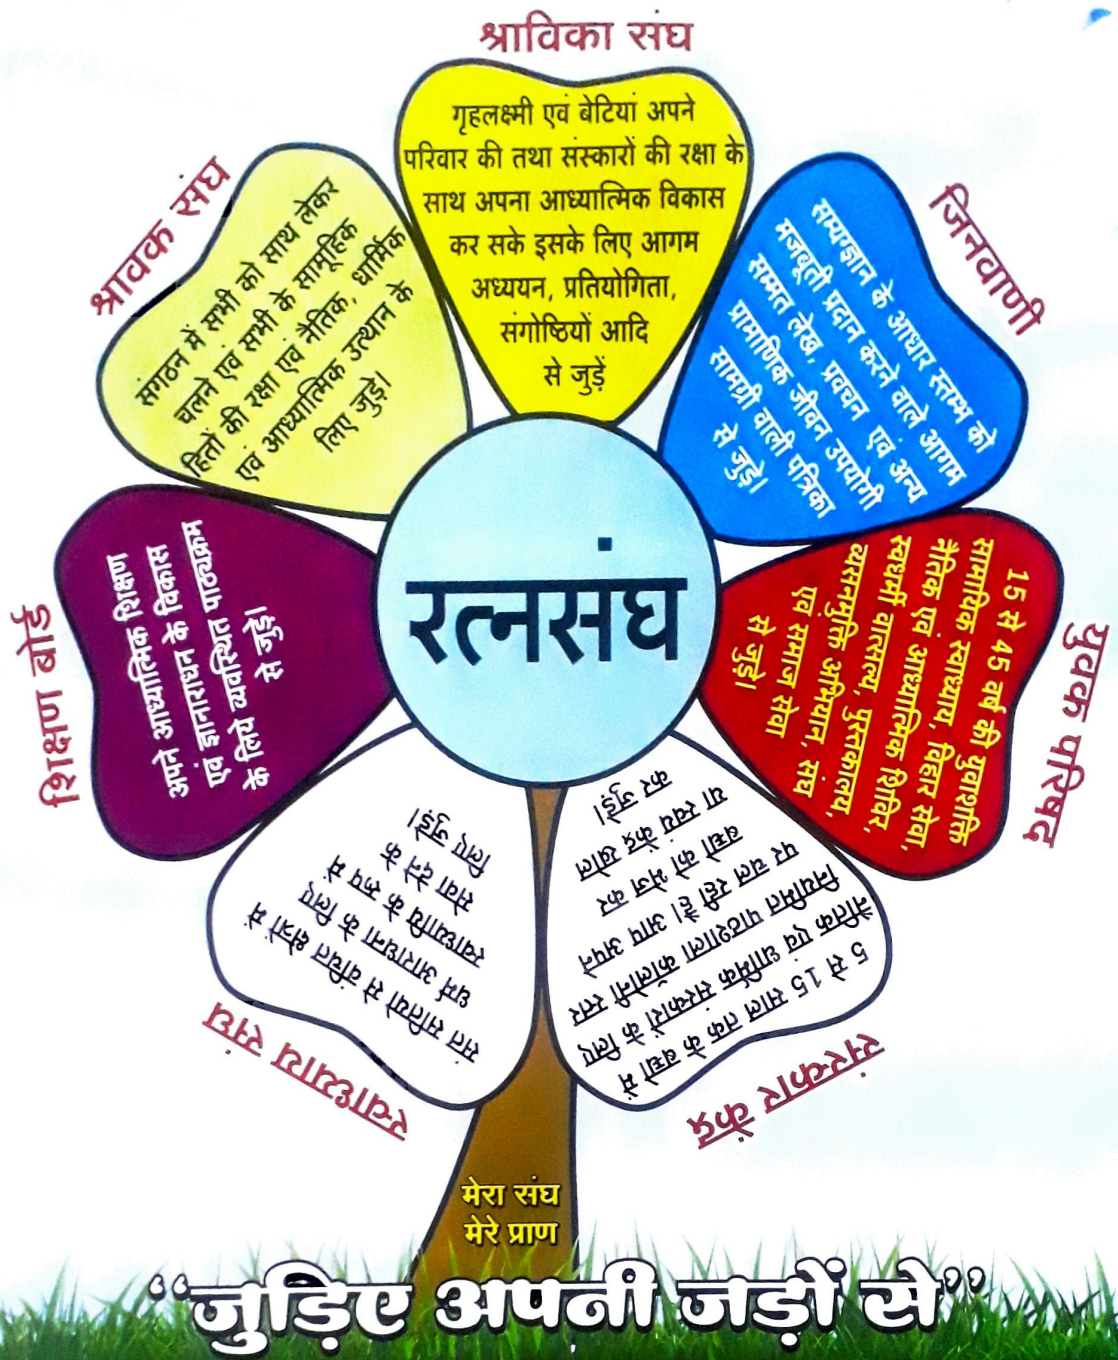 श्राविका संघ
गृहलक्ष्मी एवं बेटियां अपने
परिवार की तथा संस्कारों की रक्षा के
साथ अपना आध्यात्मिक विकास
कर सके इसके लिए आगम
अध्ययन, प्रतियोगिता,
संगोष्ठियों आदि
से जुड़ें
जिनवाणी
सम्यग्ज्ञान के आधार स्तम्भ को
मजबूती प्रदान करने वाले आगम
सम्मत लेख, प्रवचन एवं अन्य
प्रामाणिक जीवन उपयोगी
सामग्री वाली पत्रिका
से जुड़े।
युवक परिषद
15 से 45 वर्ष की युवाशक्ति
सामायिक स्वाध्याय, विहार सेवा,
नैतिक एवं आध्यात्मिक शिविर,
स्वधर्मी वात्सल्य, पुस्तकालय,
व्यसनमुक्ति अभियान, संघ
एवं समाज सेवा
से जुड़े।
संस्कार केंद्र
5 से 15 साल तक के बच्चों में
नैतिक एवं धार्मिक संस्कारों के लिए
नियमित पाठशाला कॉलोनी स्तर
पर चल रही है। आप अपने
बच्चों को भेज कर
या स्वयं केंद्र खोल
कर जुड़े।
स्वाध्याय संघ
संत सतियों से वंचित क्षेत्रों में
धर्म आराधना के लिए
स्वाध्यायि के रूप में
सेवा देने के
लिए जुड़े।
शिक्षण बोर्ड
अपने आध्यात्मिक शिक्षण
एवं ज्ञानाराधन के विकास
के लिये व्यवस्थित पाठ्यक्रम
से जुड़े।
श्रावक संघ
संगठन में सभी को साथ लेकर
चलने एवं सभी के सामूहिक
हितों की रक्षा एवं नैतिक, धार्मिक
एवं आध्यात्मिक उत्थान के
लिए जुड़े।
रत्नसंघ
मेरा संघ
मेरे प्राण
“जुड़िए अपनी जड़ों से”